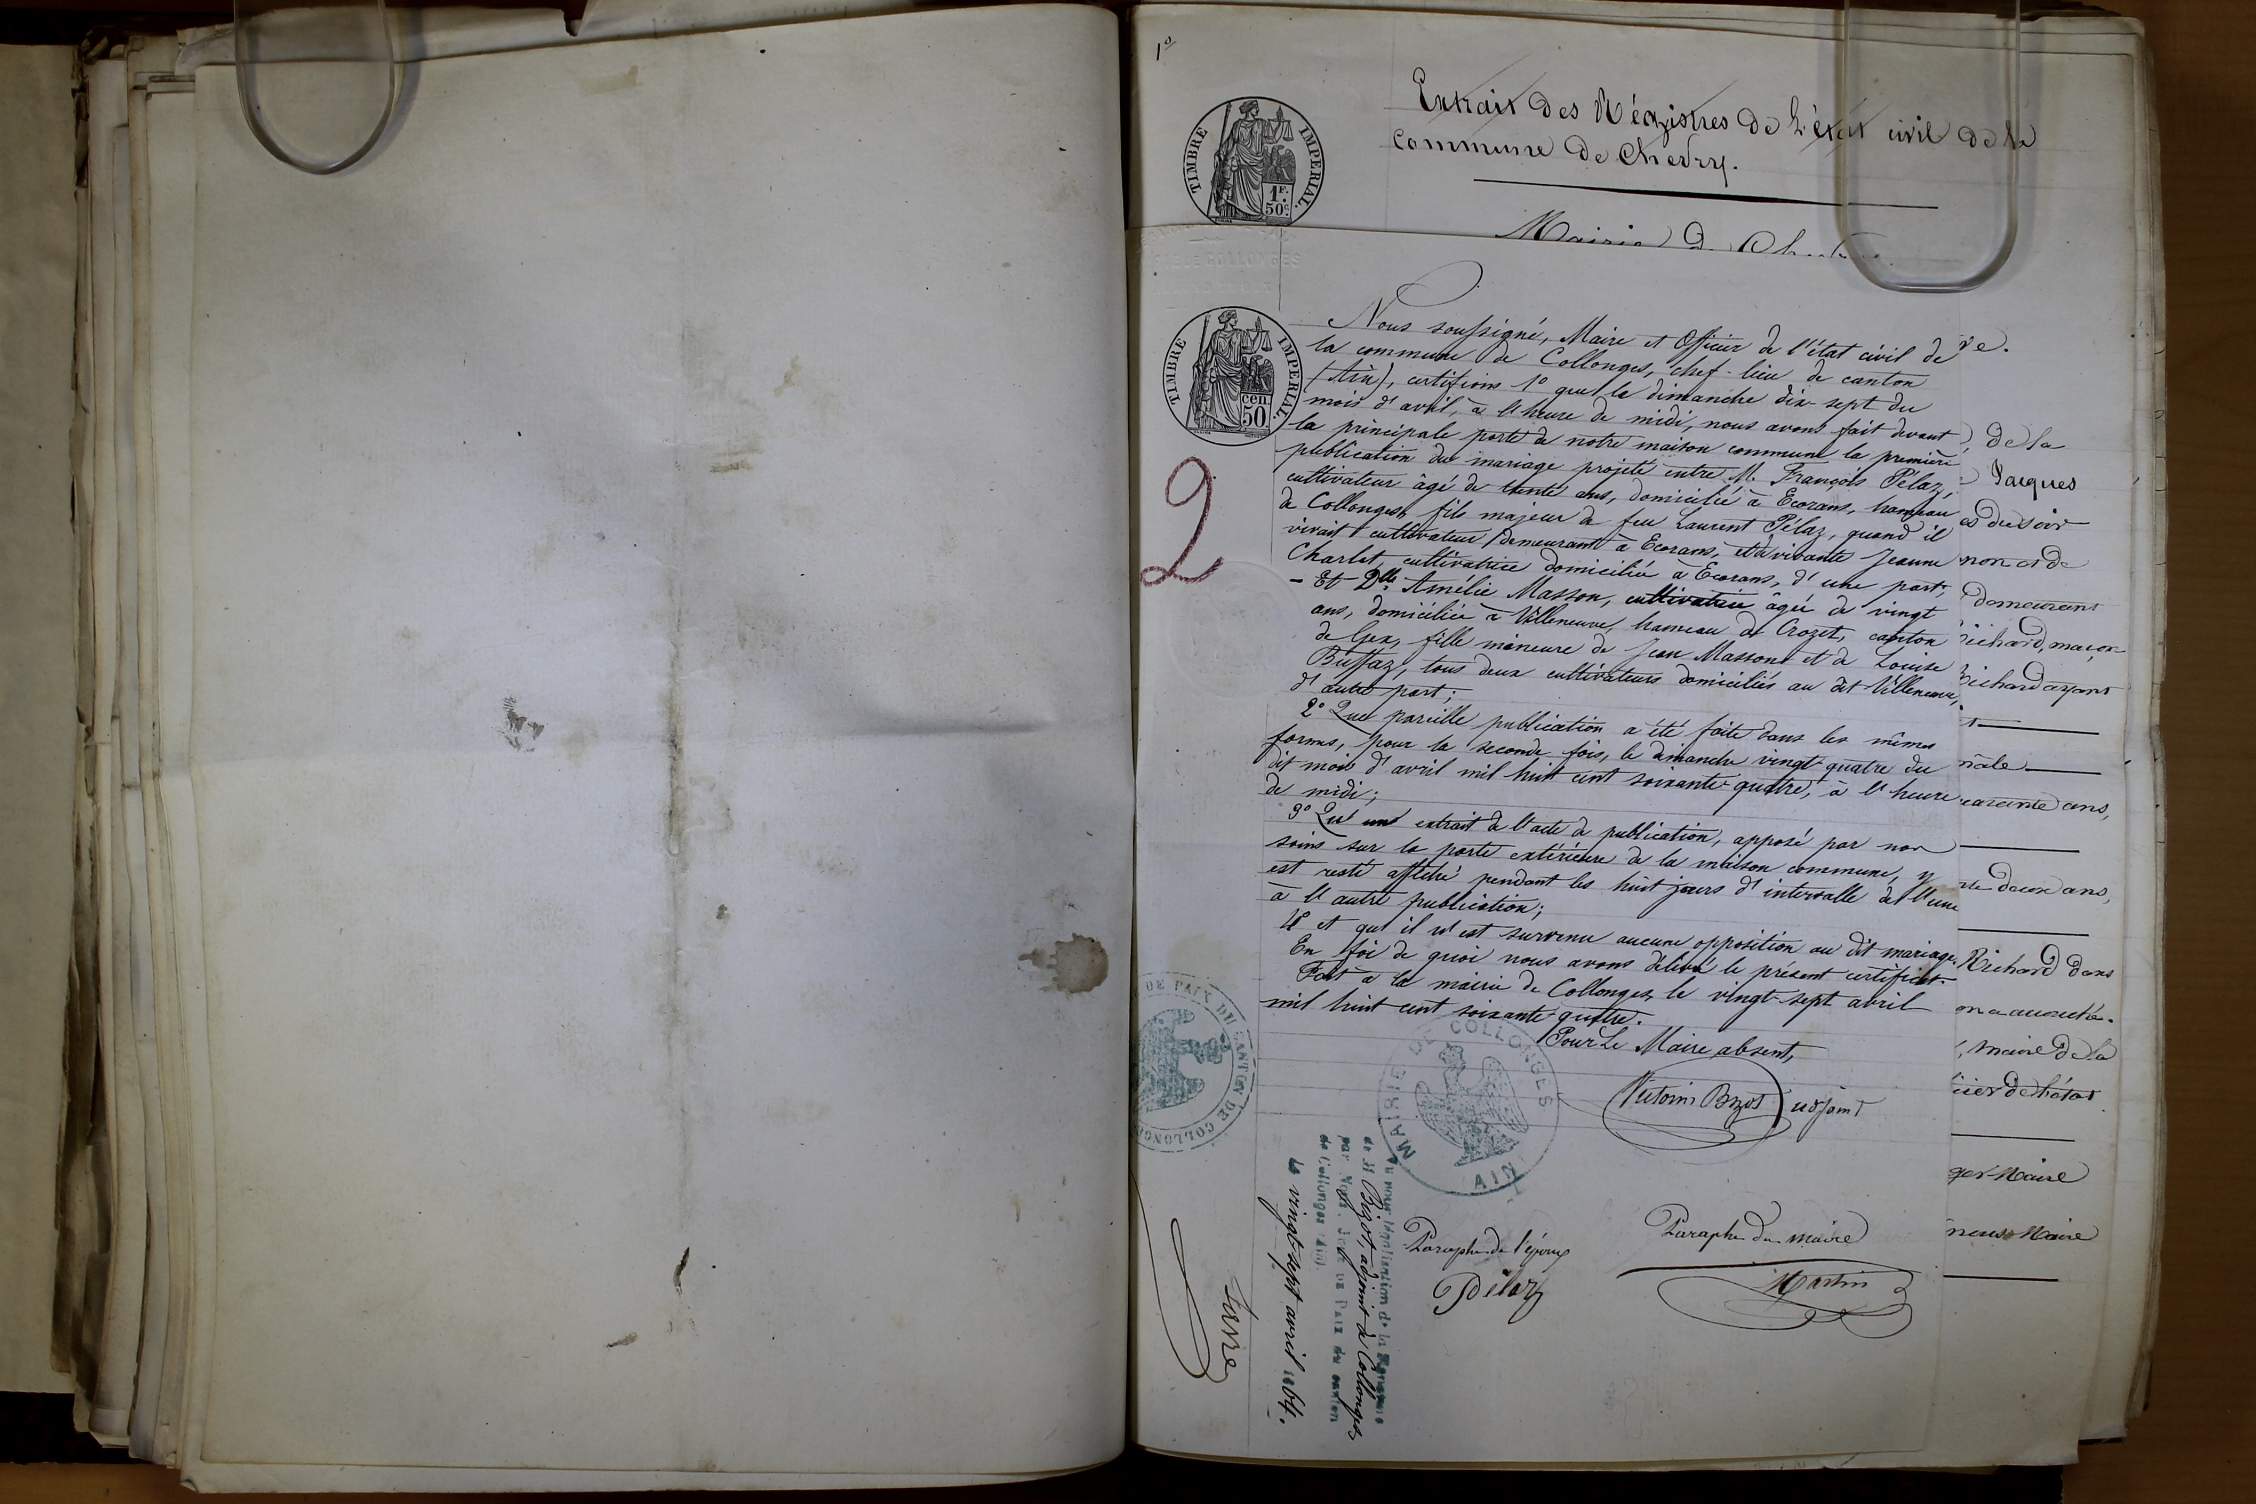 1°
Extrait des Régistres de l'état civil de la
commune de Chevry.
TIMBRE IMPERIAL.
1F. 50c.
Mairie de
TIMBRE IMPERIAL.
cen. 50
2
Nous soussigné, Maire et Officier de l'état civil de
la commune de Collonges, chef-lieu de canton
(Ain), certifions 1° que le dimanche dix-sept du
mois d'avril, à l'heure de midi, nous avons fait devant
la principale porte de notre maison commune la première
publication du mariage projeté entre M. François Pélaz,
cultivateur âgé de trente ans, domicilié à Ecorans, hameau
de Collonges, fils majeur de feu Laurent Pélaz, quand il
vivait cultivateur demeurant à Ecorans, et de vivante Jeanne
Charlet, cultivatrice domiciliée à Ecorans, d'une part;
- Et Dlle Amélie Masson, cultivatrice âgée de vingt
ans, domiciliée à Villeneuve, hameau de Crozet, canton
de Gex, fille mineure de Jean Masson et de Louise
Buffaz, tous deux cultivateurs domiciliés au dit Villeneuve,
d'autre part;
2° Que pareille publication a été faite dans les mêmes
formes, pour la seconde fois, le dimanche vingt-quatre du
dit mois d'avril mil huit cent soixante-quatre, à l'heure
de midi;
3° Qu'un extrait de l'acte de publication, apposé par nos
soins sur la porte extérieure de la maison commune, y
est resté affiché pendant les huit jours d'intervalle de l'une
à l'autre publication;
4° et qu'il n'est survenu aucune opposition au dit mariage.
En foi de quoi nous avons délivré le présent certificat.
Fait à la mairie de Collonges, le vingt-sept avril
mil huit cent soixante-quatre.
Pour Le Maire absent,
Bizot adjoint
MAIRIE DE COLLONGES
AIN
DE PAIX DU CANTON DE COLLONGES
Vu pour légalisation de la signature
de M Bizot, adjoint à Collonges
par Nous, Juge de Paix du canton
de Collonges (Ain).
le vingt-sept avril 1864.
Paraphe de l'époux
Pélaz
Paraphe du maire
Martin
de la
Jacques
du soir
non et de
demeurant
Richard, maçon
Richard ayant
quarante ans,
deux ans,
Richard dans
maire de la
Maire
Maire